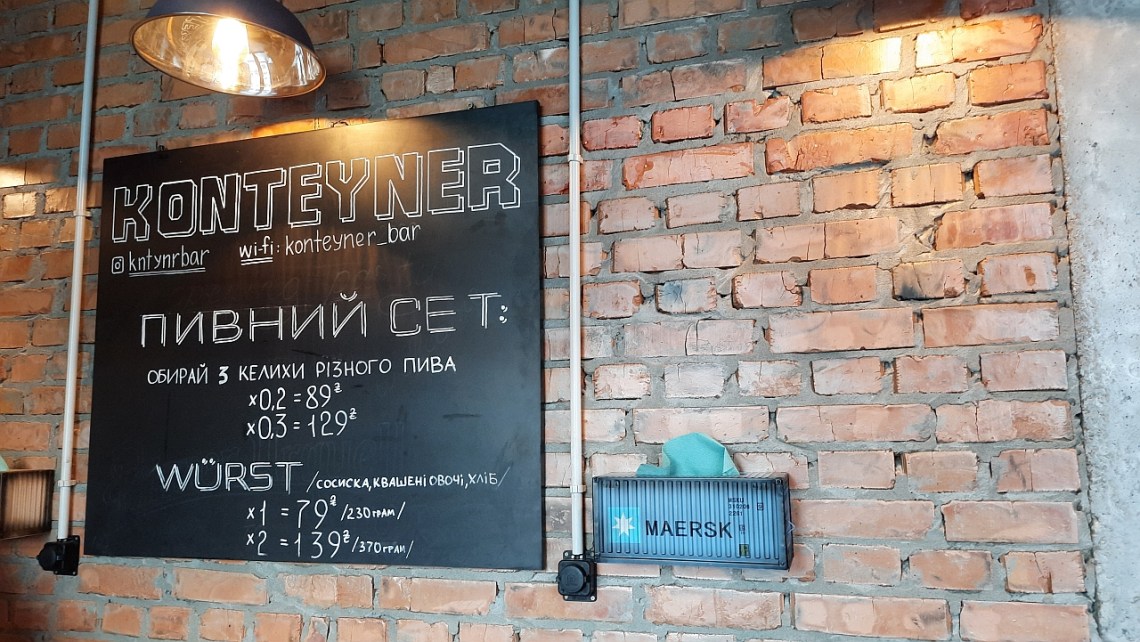 KONTEYNER
kntynrbar wi-fi: konteyner_bar
ПИВНИЙ СЕТ:
ОБИРАЙ 3 КЕЛИХИ РІЗНОГО ПИВА
x0,2 = 89₴
x0,3 = 129₴
WÜRST /СОСИСКА, КВАШЕНІ ОВОЧІ, ХЛІБ/
x1 = 79₴ /230 ГРАМ/
x2 = 139₴ /370 ГРАМ/
MAERSK